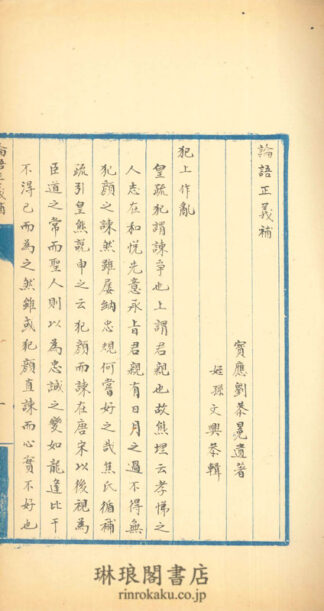 論語正義補
寶應劉恭冕遺著
姪孫文興恭輯
犯上作亂
皇疏犯謂諫爭也上謂君親也故熊埋云孝悌之
人志在和悅先意承旨君親有日月之過不得無
犯顏之諫然雖屡納忠規何嘗好之哉焦氏循補
疏引皇熊說申之云犯顏而諫在唐宋以後視為
臣道之常而聖人則以為忠誠之變如龍逢比干
不得已而為之然雖或犯顏直諫而心實不好也
論語正義補
一
琳琅閣書店
rinrokaku.co.jp